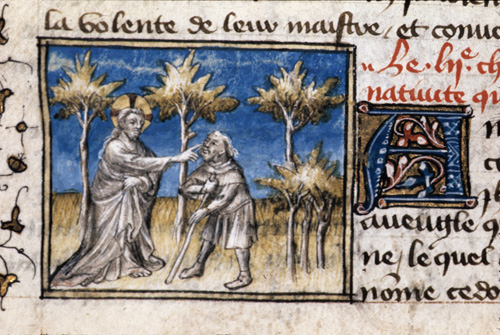 la volente de leur maistre, et conue
Le ch
natiuite qu
A
aueugle q
ne, le quel
nome cedo